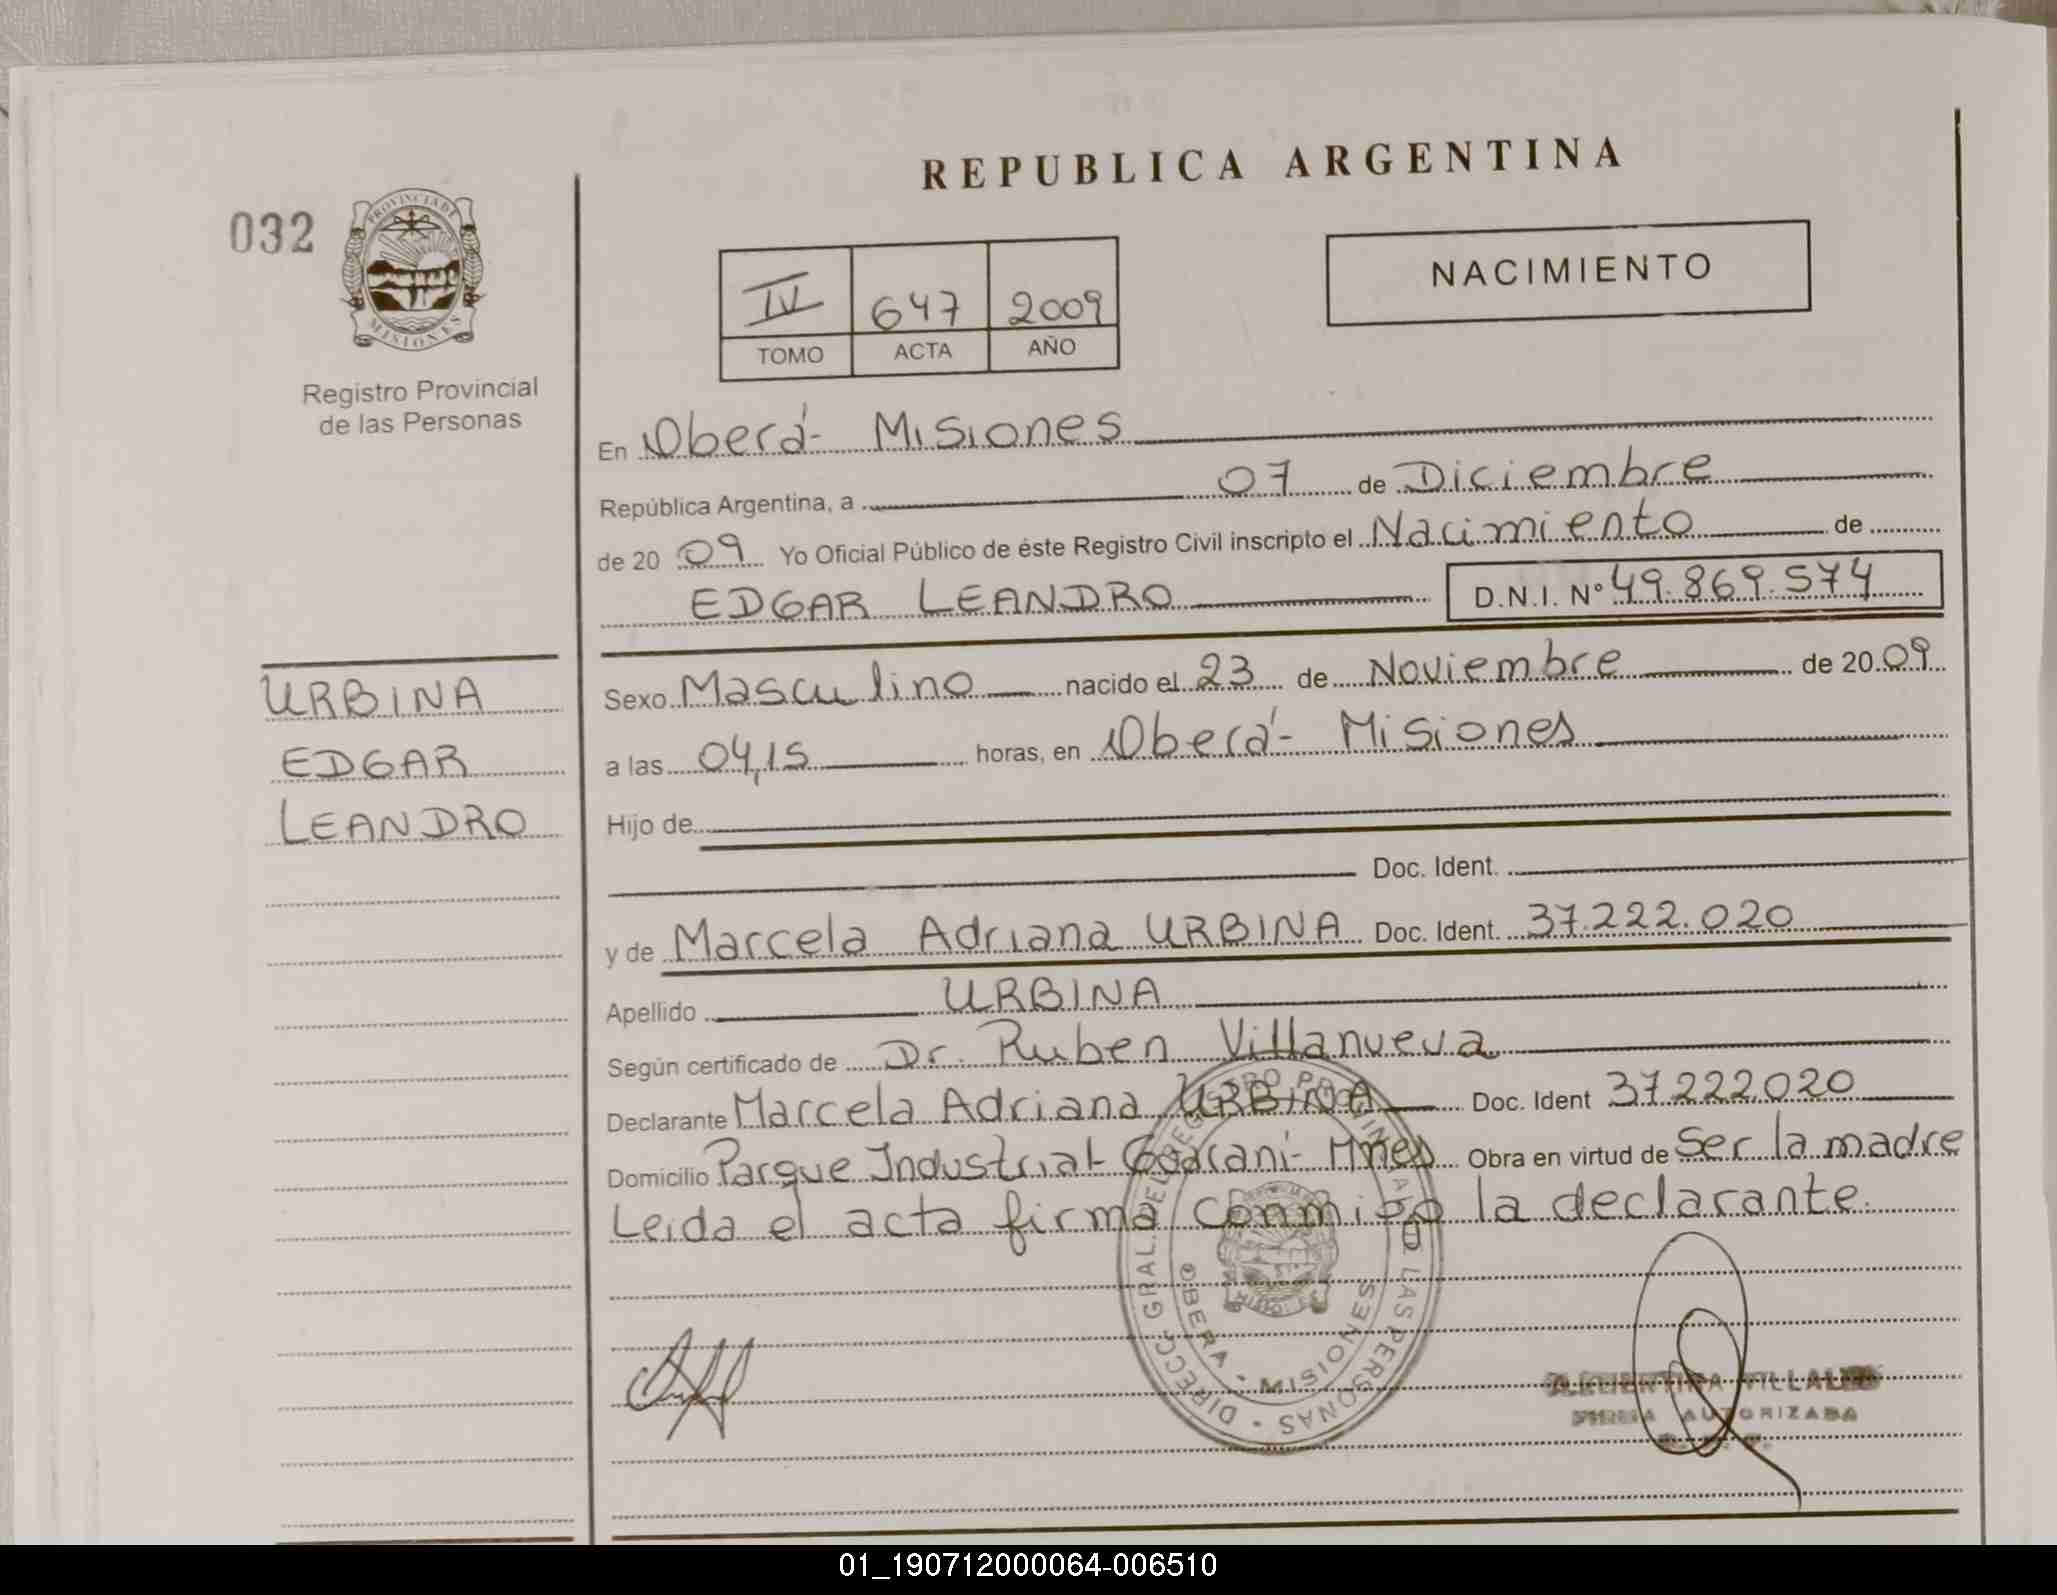 REPUBLICA ARGENTINA
032
PROVINCIA DE
MISIONES
Registro Provincial
de las Personas
NACIMIENTO
IV 647 2009
TOMO ACTA AÑO
En Oberá- Misiones
República Argentina, a 07 de Diciembre
de 20 09 Yo Oficial Público de éste Registro Civil inscripto el Nacimiento de
EDGAR LEANDRO D.N.I. Nº 49.869.574
URBINA
EDGAR
LEANDRO
Sexo Masculino nacido el 23 de Noviembre de 20 09
a las 04,15 horas, en Oberá- Misiones
Hijo de
Doc. Ident.
y de Marcela Adriana URBINA Doc. Ident. 37.222.020
Apellido URBINA
Según certificado de Dr. Ruben Villanueva
Declarante Marcela Adriana URBINA Doc. Ident 37.222.020
Domicilio Parque Industrial- Guaraní- Mnes Obra en virtud de Ser la madre
Leida el acta firma conmigo la declarante.
DIRECC. GRAL. DEL REGISTRO PROVINCIAL DE LAS PERSONAS
OBERA - MISIONES
VILLALBA
FIRMA AUTORIZADA
01_190712000064-006510